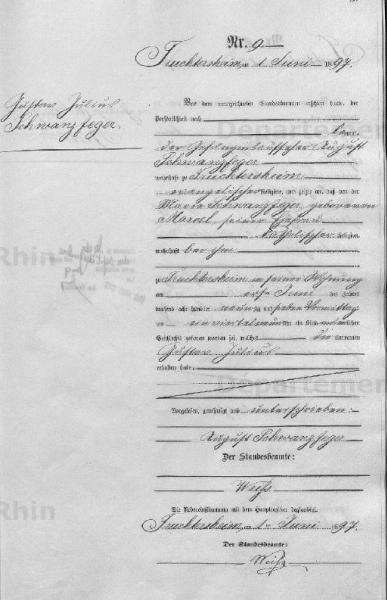 Nr. 9
Truchtersheim, am 1. Juni 1897.
Gustav Julius
Schwanzfeger.
Vor dem unterzeichneten Standesbeamten erschien heute, der
Persönlichkeit nach
bekannt,
der Gefangenaufseher August
Schwanzfeger
wohnhaft zu Truchtersheim
evangelischer Religion, und zeigte an, daß von der
Maria Schwanzfeger, geborenen
Marzel, seiner Ehefrau
katholischer Religion,
wohnhaft bei ihm
Truchtersheim in seiner Wohnung
am Juni des Jahres
tausend acht hundert neunzig und sieben Vormittag
um ein Kind männlichen
Geschlechts geboren worden sei, welches die Vornamen
Gustav Julius
erhalten habe.
Vorgelesen, genehmigt und unterschrieben:
August Schwanzfeger
Der Standesbeamte:
Weiß
Die Uebereinstimmung mit dem Hauptregister beglaubigt.
Truchtersheim, am 1. Juni 1897.
Der Standesbeamte:
Weiß
Departemen
Rhin
Departemen
Rhin